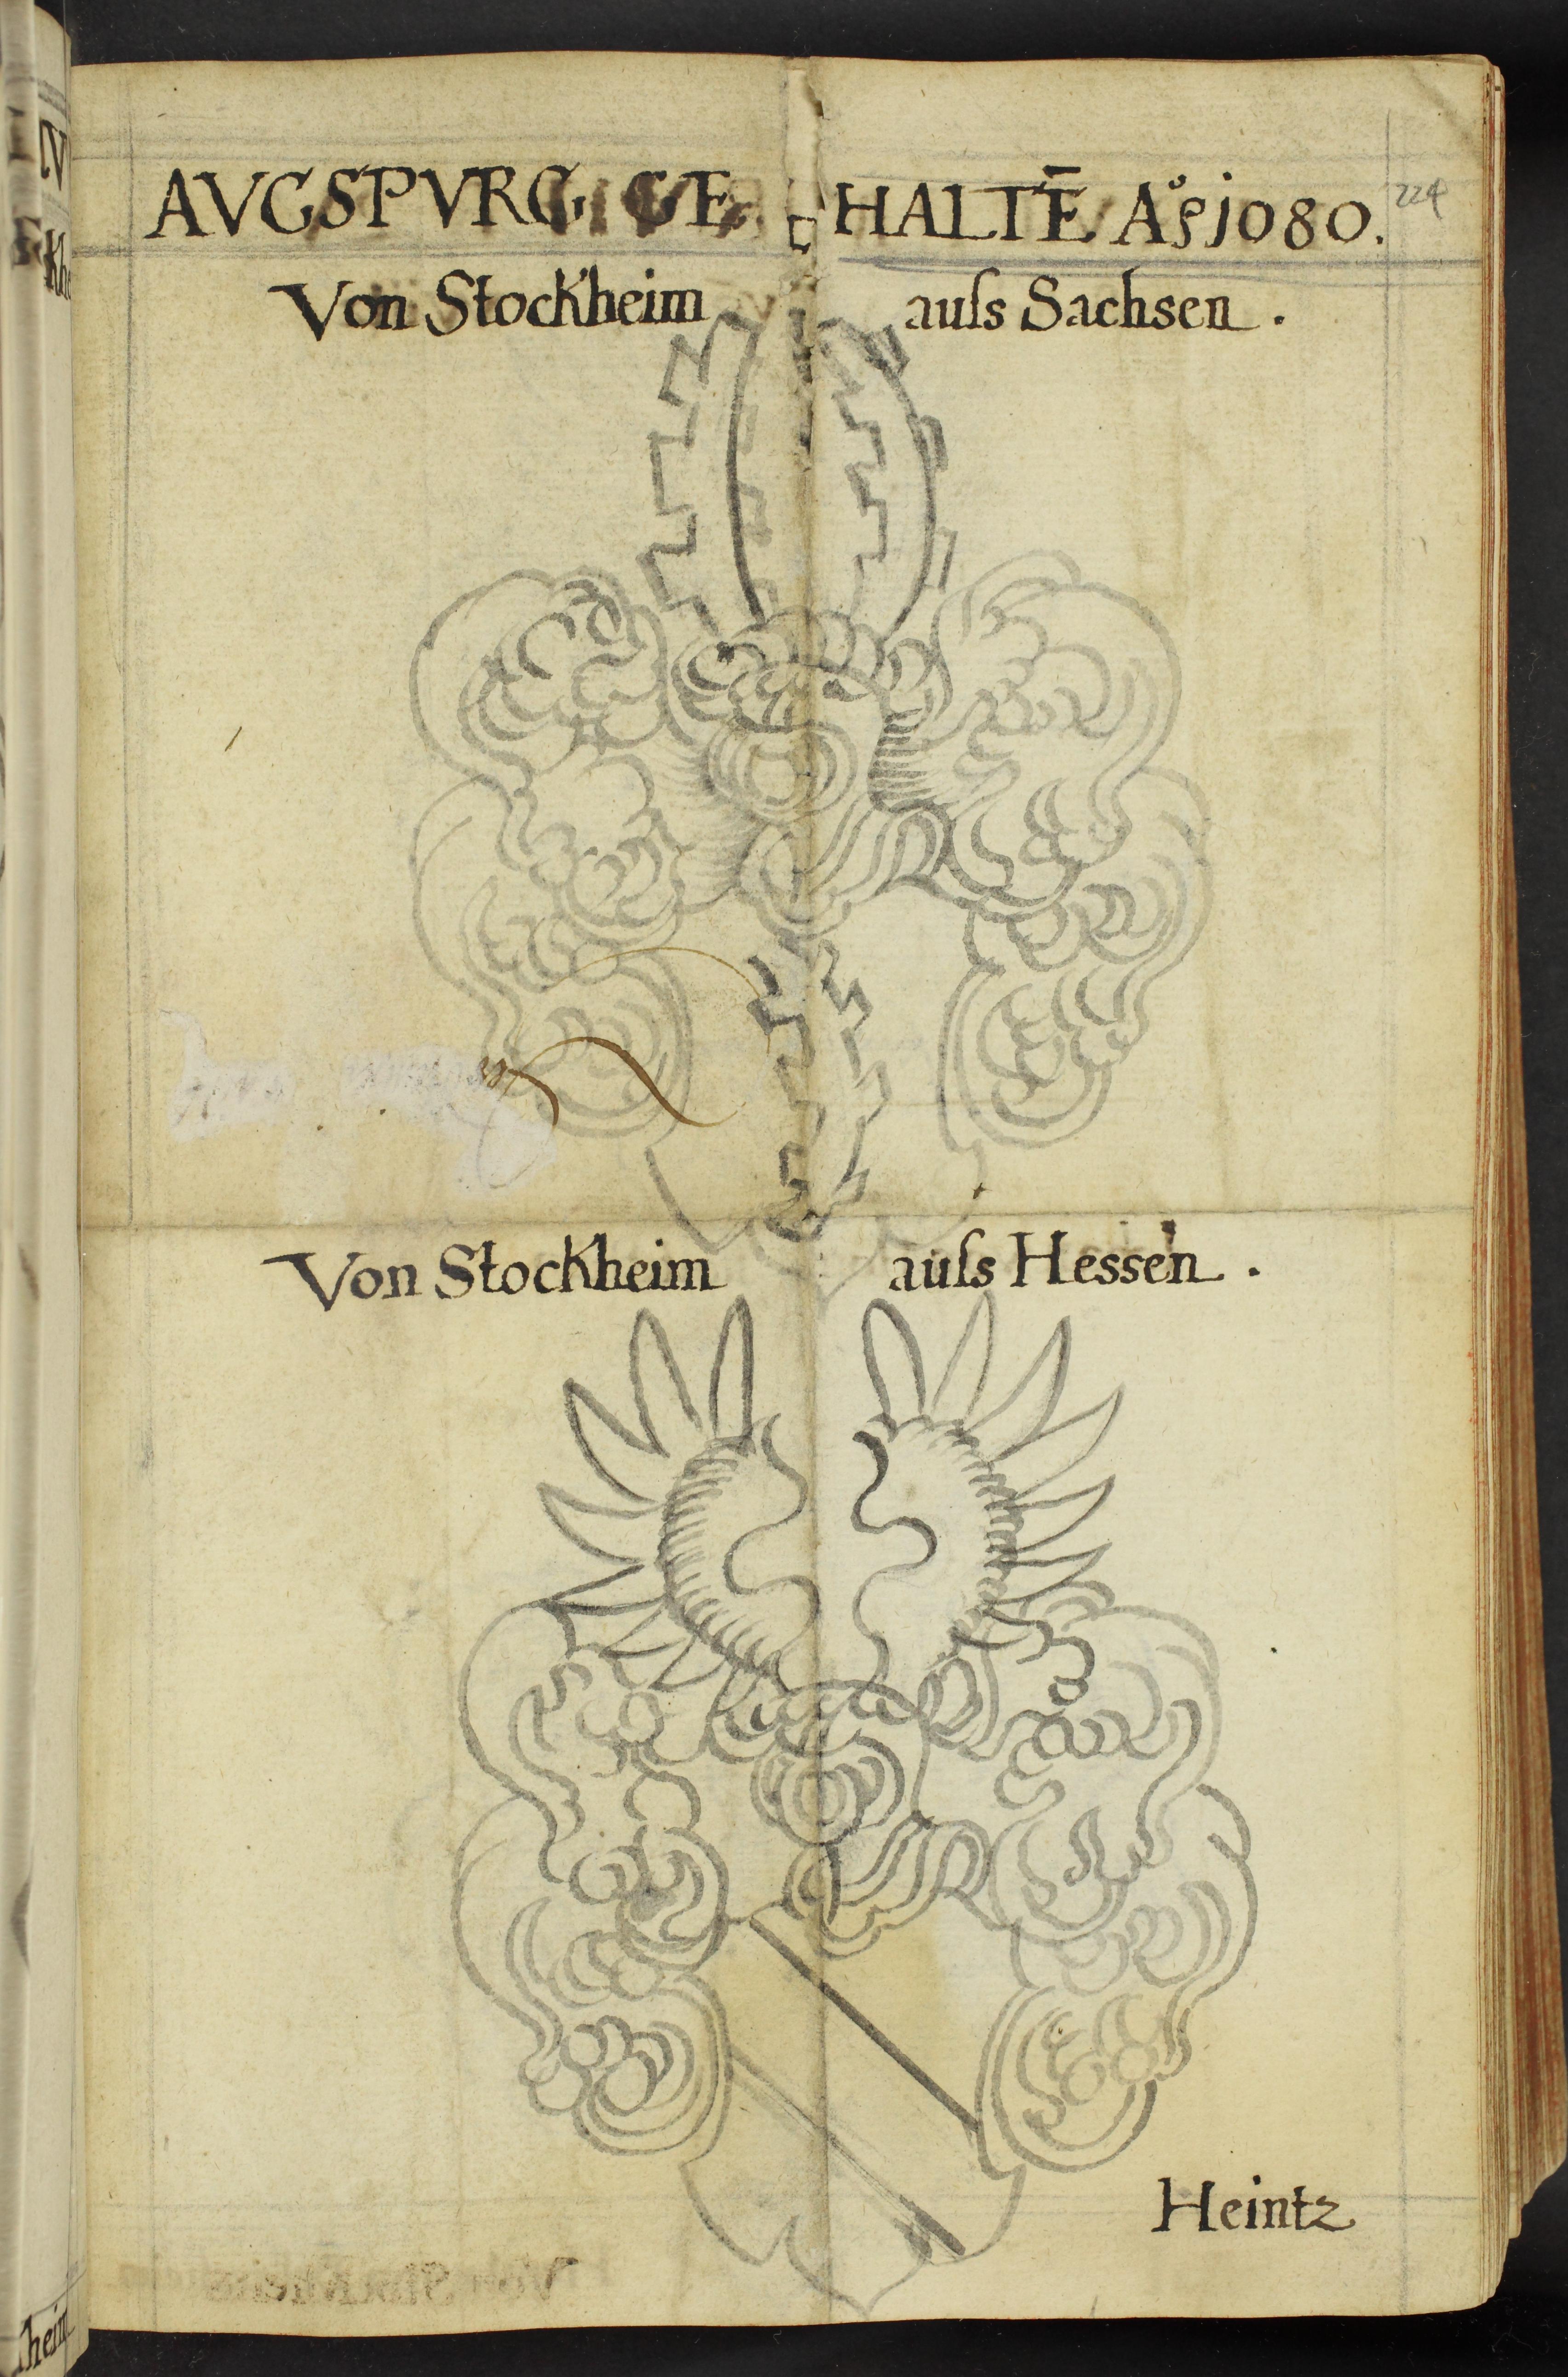 AVGSPVRG, GE HALTĒ Aº 1080.
224
Von Stockheim auſs Sachsen.
Von Stockheim auſs Hessen.
Heintz